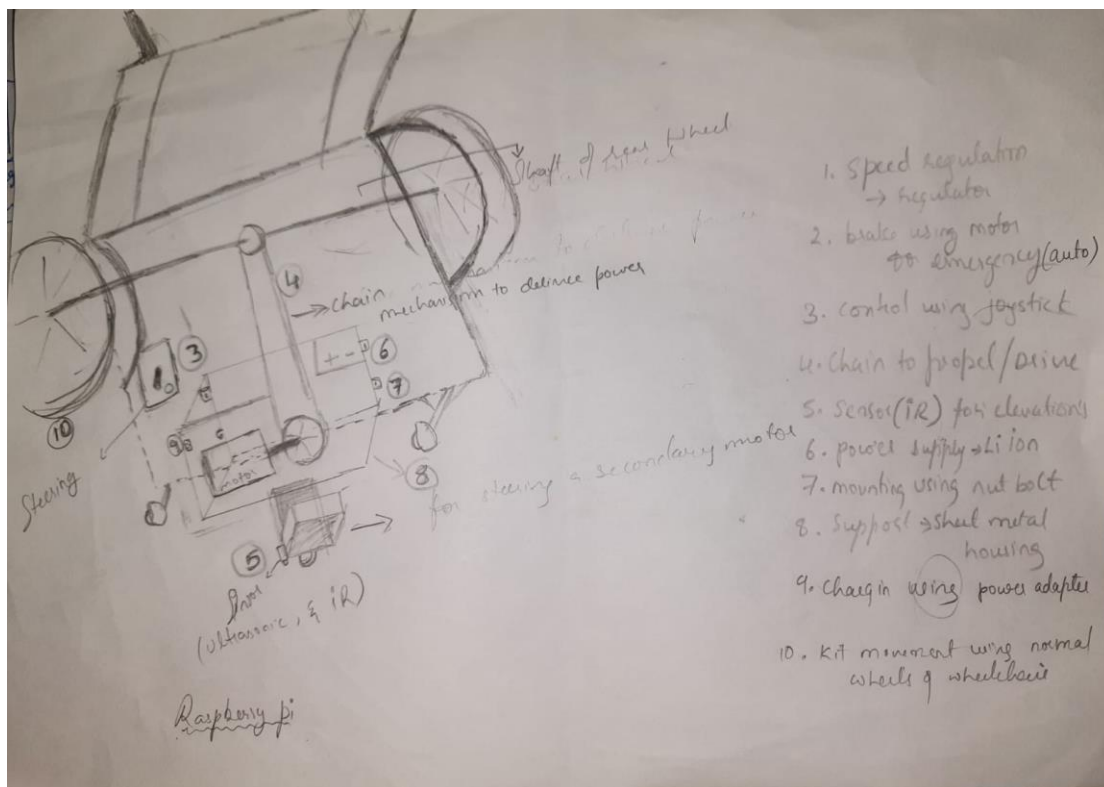 Shaft of rear wheel
4
→ Chain
mechanism to delivee power
3
+ -
6
7
10
98
motor
Steering
8
for steering a secondary motor
5
(Ultrasonic, & iR)
Raspberry pi
1. Speed regulation
→ regulator
2. brake using motor
emergency (auto)
3. control using joystick
4. Chain to propel/Drive
5. Sensor (iR) for elevations
6. power supply → Li ion
7. mounting using nut bolt
8. Support → sheet metal
housing
9. Chargin using power adapter
10. Kit movement using normal
wheels of wheelchair